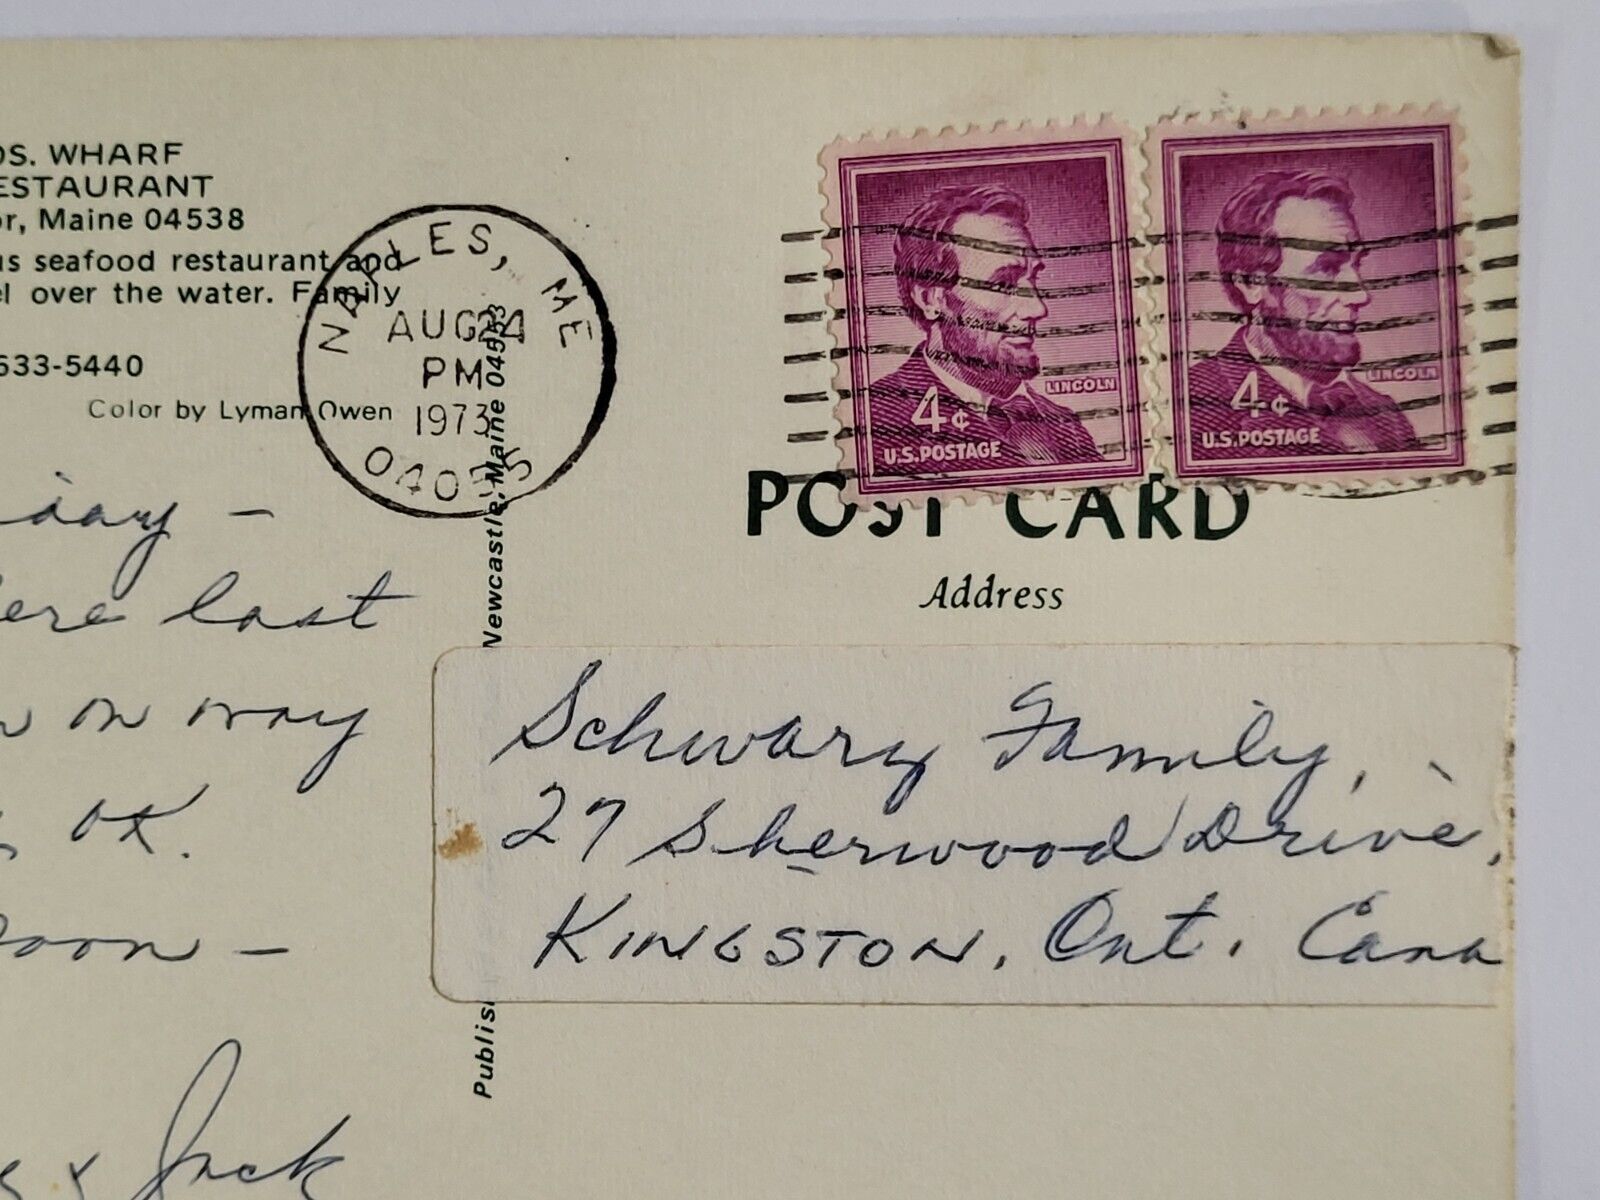 OS. WHARF
ESTAURANT
or, Maine 04538
us seafood restaurant and
el over the water. Family
533-5440
Color by Lyman Owen
NAPLES, ME
AUG 24
PM
1973
04055
iday -
ere last
on way
OK.
Soon -
& Jack
Publis
Newcastle, Maine 04553
LINCOLN
4¢
U.S. POSTAGE
LINCOLN
4¢
U.S. POSTAGE
POST CARD
Address
Schwarz Family,
27 Sherwood Drive,
KINGSTON, Ont. Cana